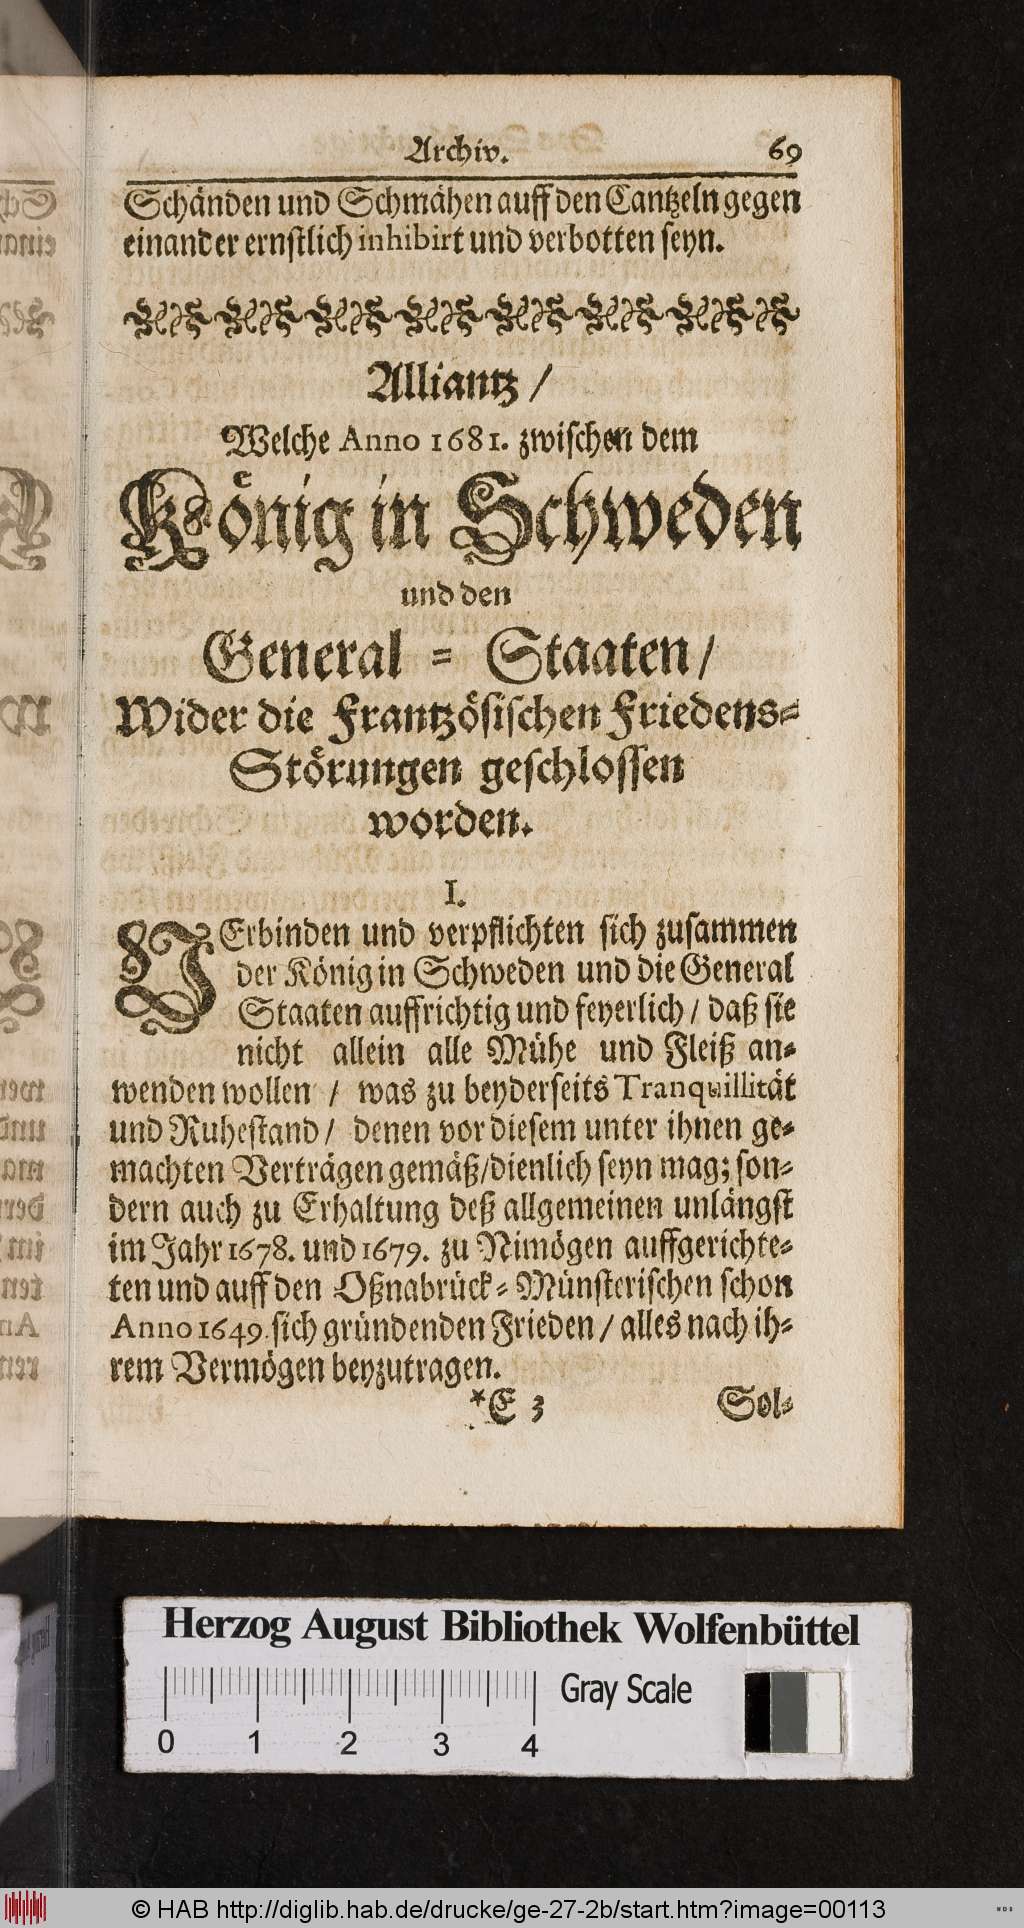 Archiv. 69
Schänden und Schmähen auff den Cantzeln gegen
einander ernstlich inhibirt und verbotten seyn.
Alliantz /
Welche Anno 1681. zwischen dem
König in Schweden
und den
General = Staaten /
Wider die Frantzösischen Friedens=
Störungen geschlossen
worden.
I.
VErbinden und verpflichten sich zusammen
der König in Schweden und die General
Staaten auffrichtig und feyerlich / daß sie
nicht allein alle Mühe und Fleiß an=
wenden wollen / was zu beyderseits Tranquillität
und Ruhestand / denen vor diesem unter ihnen ge=
machten Verträgen gemäß / dienlich seyn mag; son=
dern auch zu Erhaltung deß allgemeinen unlängst
im Jahr 1678. und 1679. zu Nimögen auffgerichte=
ten und auff den Oßnabrück = Münsterischen schon
Anno 1649. sich gründenden Frieden / alles nach ih=
rem Vermögen beyzutragen.
*E 3 Sol=
Herzog August Bibliothek Wolfenbüttel
Gray Scale
0 1 2 3 4
© HAB http://diglib.hab.de/drucke/ge-27-2b/start.htm?image=00113